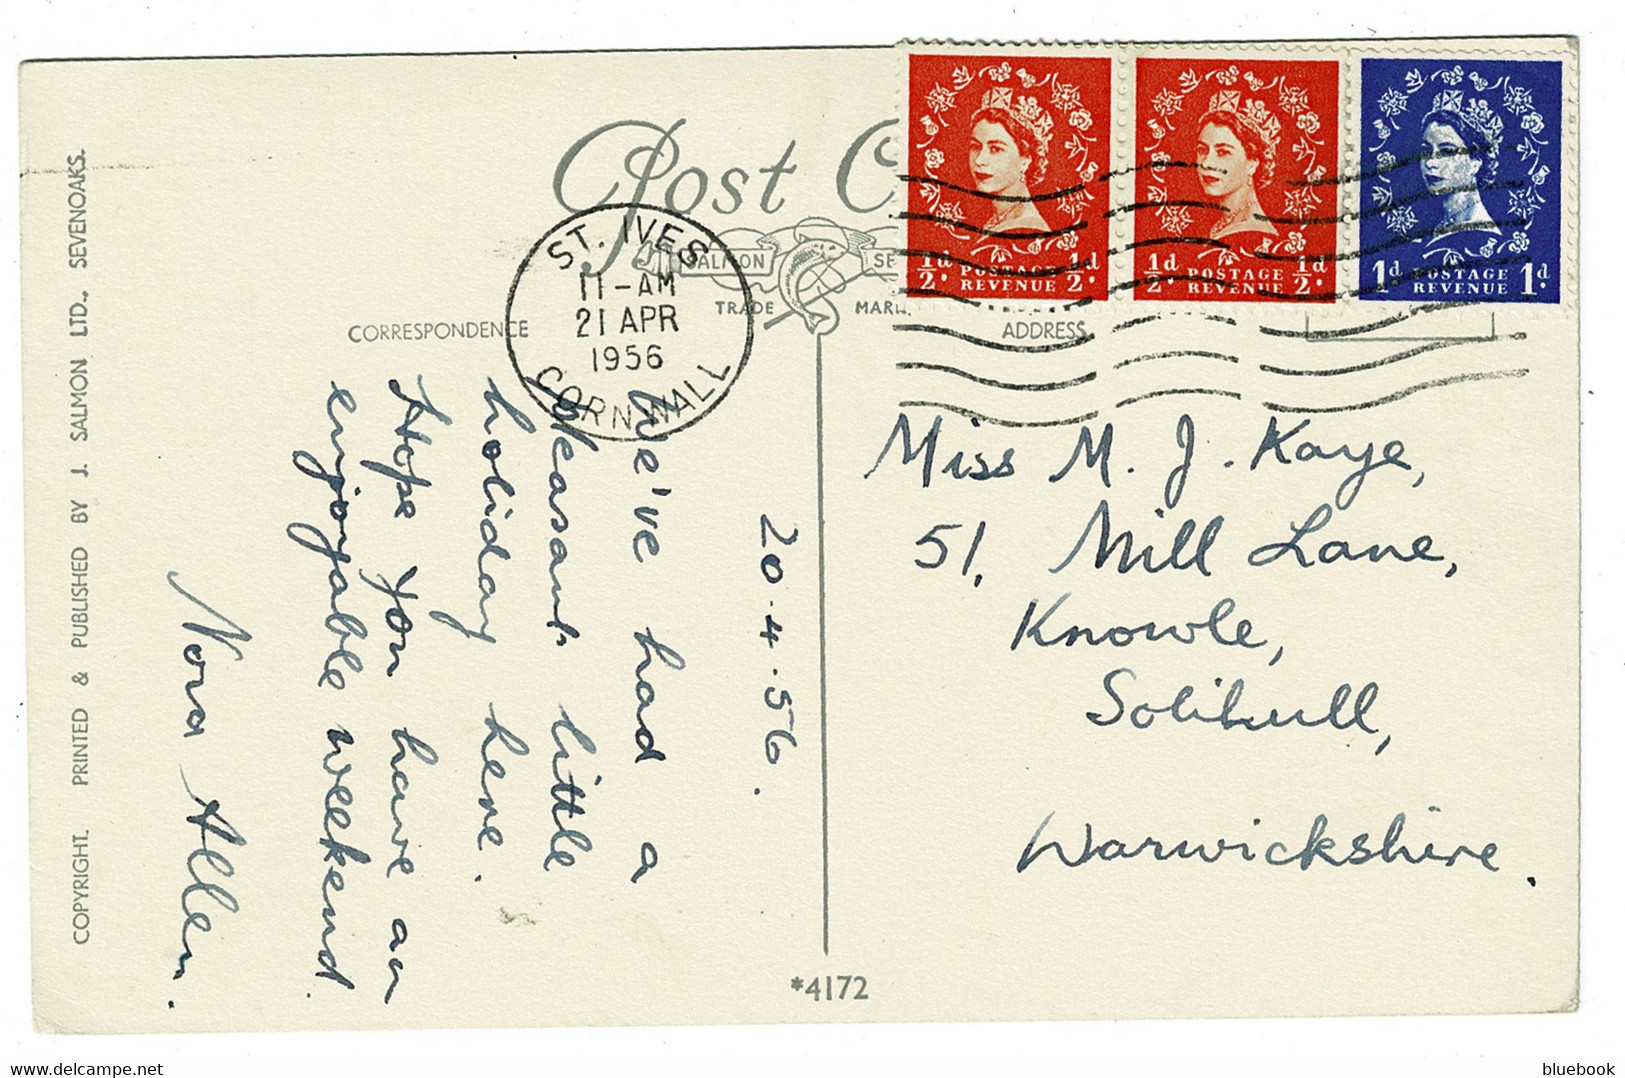 Post C
SALMON SE
TRADE MARK
CORRESPONDENCE
ADDRESS
ST. IVES
11-AM
21 APR
1956
CORNWALL
½d. POSTAGE REVENUE ½d.
½d. POSTAGE REVENUE ½d.
1d. POSTAGE REVENUE 1d.
20.4.56.
We've had a
pleasant little
holiday here.
Hope you have an
enjoyable weekend
Nora Allen.
Miss M. J. Kaye,
51, Mill Lane,
Knowle,
Solihull,
Warwickshire.
COPYRIGHT. PRINTED & PUBLISHED BY J. SALMON LTD., SEVENOAKS.
*4172
delcampe.net
bluebook